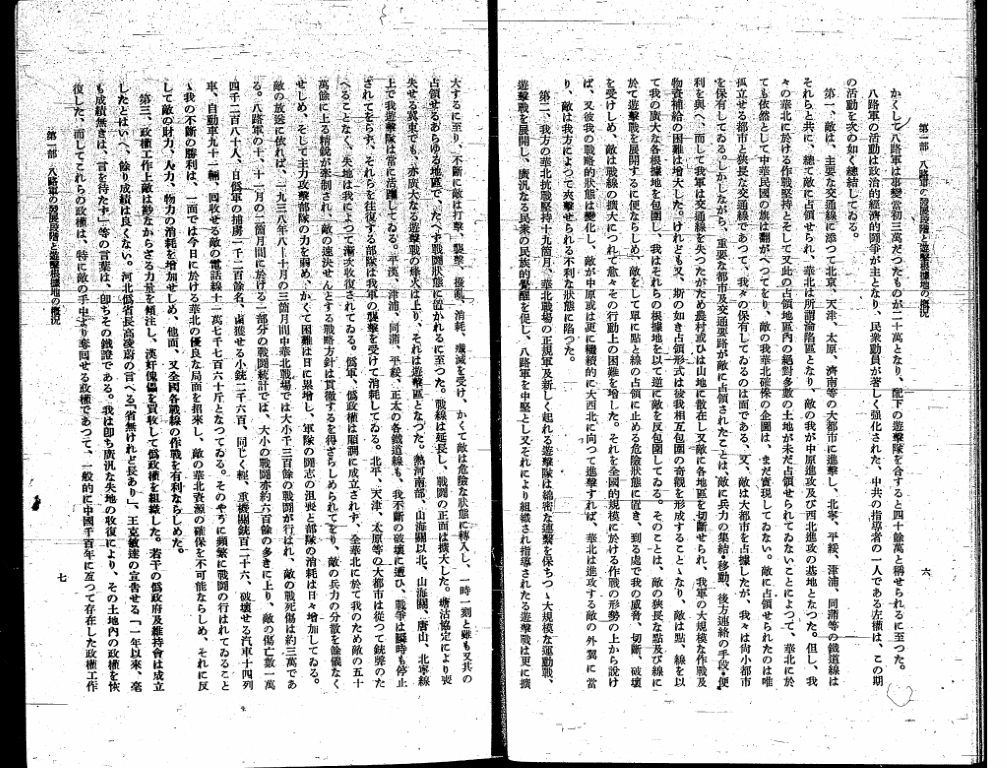 第一部　八路軍の發展段階と遊擊根據地の概況
六
かくして八路軍は事變當初三萬だつたものが二十萬となり、配下の遊擊隊を合すると四十餘萬と稱せられるに至つた。
八路軍の活動は政治的經濟的鬪爭が主となり、民衆動員が著しく强化された、中共の指導者の一人である左權は、この期
の活動を次の如く總結してゐる。
第一、敵は、主要な交通線に添つて北京、天津、太原、濟南等の大都市に進擊し、北寧、平綏、津浦、同蒲等の鐵道線は
それらと共に、總て敵に占領せられ、華北は所謂淪陷區となり、敵の我が中原進攻及び西北進攻の基地となつた。但し、我
々の華北に於ける作戰堅持とそして又此の占領地區內の絕對多數の土地が未だ占領せられてゐないことによつて、華北に於
ても依然として中華民國の旗は翻がへつてをり、敵の我華北確保の企圖は、まだ實現してゐない。敵に占領せられたのは唯
孤立せる都市と狹長な交通線であつて、我々の保有してゐるのは面である、又、敵は大都市を占據したが、我々は尙小都市
を保有してゐる。しかしながら、重要な都市及交通要路が敵に占領されたことは、敵に兵力の集結・移動、後方連絡の手段・便
利を與へ、而して我軍は交通線を失つたがため農村或ひは山地に散在し又敵に各地區を切斷せられ、我軍の大規模な作戰及
物資補給の困難は增大した。けれども又、斯の如き占領形式は彼我相互包圍の奇觀を形成することゝなり、敵は點、線を以
て我の廣大な各根據地を包圍し、我はそれらの根據地を以て逆に敵を反包圍してゐる。そのことは、敵の狹長な點及び線に
於て遊擊戰を展開するに便ならしめ、敵をして單に點と線の占領に止める危險狀態に置き、到る處で我の威脅、切斷、破壞
を受けしめ、敵は戰線の擴大につれて愈々その行動上の困難を增した。それを全國的規模に於ける作戰の形勢の上から說け
ば、又彼我の戰略的狀態は變化し、敵が中原或は更に繼續的に大西北に向つて進擊すれば、華北は進攻する敵の外翼に當
り、敵は我方によつて夾擊せられる不利な狀態に陷つた。
第二、我方の華北抗戰堅持十九箇月、華北戰場の正規軍及新しく起れる遊擊隊は綿密な連繫を保ちつゝ大規模な運動戰、
遊擊戰を展開し、廣汎なる民衆の民族的覺醒を促し、八路軍を中堅とし又それにより組織され指導されたる遊擊戰は更に擴
大するに至り、不斷に敵は打擊、襲擊、擾亂、消耗、殲滅を受け、かくて敵は危險な狀態に轉入し、一時一刻と雖も又其の
占領せるあらゆる地區で、たへず戰鬪狀態に置かれるに至つた。戰線は延長し、戰鬪の正面は擴大した。塘沽協定により喪
失せる冀東でも、亦廣大なる遊擊戰の烽火は上り、それは遊擊區となつた。熱河南部、山海關以北、山海關、唐山、北寧線
上で我遊擊隊は常に活躍してゐる。平漢、津浦、同浦、平綏、正太の各鐵道線も、我不斷の破壞に遭ひ、戰爭は瞬時も停止
されてをらず、それらを往復する部隊は我軍の襲擊を受けて消耗してゐる。北平、天津、太原等の大都市は從つて銃聲のた
へることなく、失地は我によつて漸次收復されてゐる。僞軍、僞政權は順調に成立されず、全華北に於て我のため敵の五十
萬餘に上る精銳が牽制され、敵の速決せんとする戰略方針は貫徹するを得ざらしめられてをり、敵の兵力の分散を餘儀なく
せしめ、そして主力攻擊部隊の力を弱め、かくて困難は日に累增し、軍隊の鬪志の沮喪と部隊の消耗は日々增加してゐる。
敵の放送に依れば、一九三八年八―十月の三箇月間中華北戰場では大小千三百餘の戰鬪が行はれ、敵の戰死傷は約三萬であ
る。八路軍の十、十一月の二箇月間に於ける一部分の戰鬪統計では、大小の戰鬪亦約六百餘の多きに上り、敵の傷亡數一萬
四千二百八十人、日僞軍の捕虜二千二百餘名、鹵獲せる小銃二千六百、同じく輕、重機關銃百二十六、破壞せる汽車十四列
車、自動車九十一輛、囘收せる敵の電話線十一萬七千七百六十斤となつてゐる。そのやうに頻繁に戰鬪の行はれてゐること
ゝ我の不斷の勝利は、一面では今日に於ける華北の優良な局面を招來し、敵の華北資源の確保を不可能ならしめ、それに反
して敵の財力、人力、物力の消耗を增加せしめ、他面、又全國各戰線の作戰を有利ならしめた。
第三、政權工作上敵は尠なからざる力量を傾注し、漢奸傀儡を買收して僞政權を組織した。若干の僞政府及維持會は成立
したとはいへ、餘り成績は良くない。河北僞省長高凌蔚の言へる「省無けれど長あり」、王克敏逹の宣吿せる「一年以來、毫
も成績無きは、言を待たず」等の言葉は、卽ちその鐵證である。我は卽ち廣汎な失地の收復により、その土地內の政權を恢
復した、而してこれらの政權は、特に敵の手中より奪囘せる政權であつて、一般的に中國千百年に亙つて存在した政權工作
第一部　八路軍の發展段階と遊擊根據地の概況
七